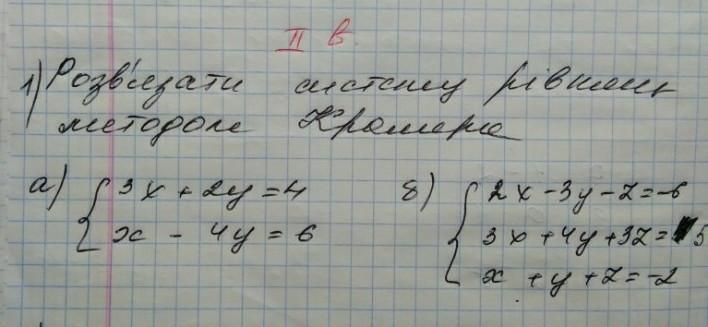 II в.
1) Розв'язати систему рівнянь
методом Крамера
а) { 3x + 2y = 4
x - 4y = 6
б) { 2x - 3y - z = -6
3x + 4y + 3z = 5
x + y + z = -2